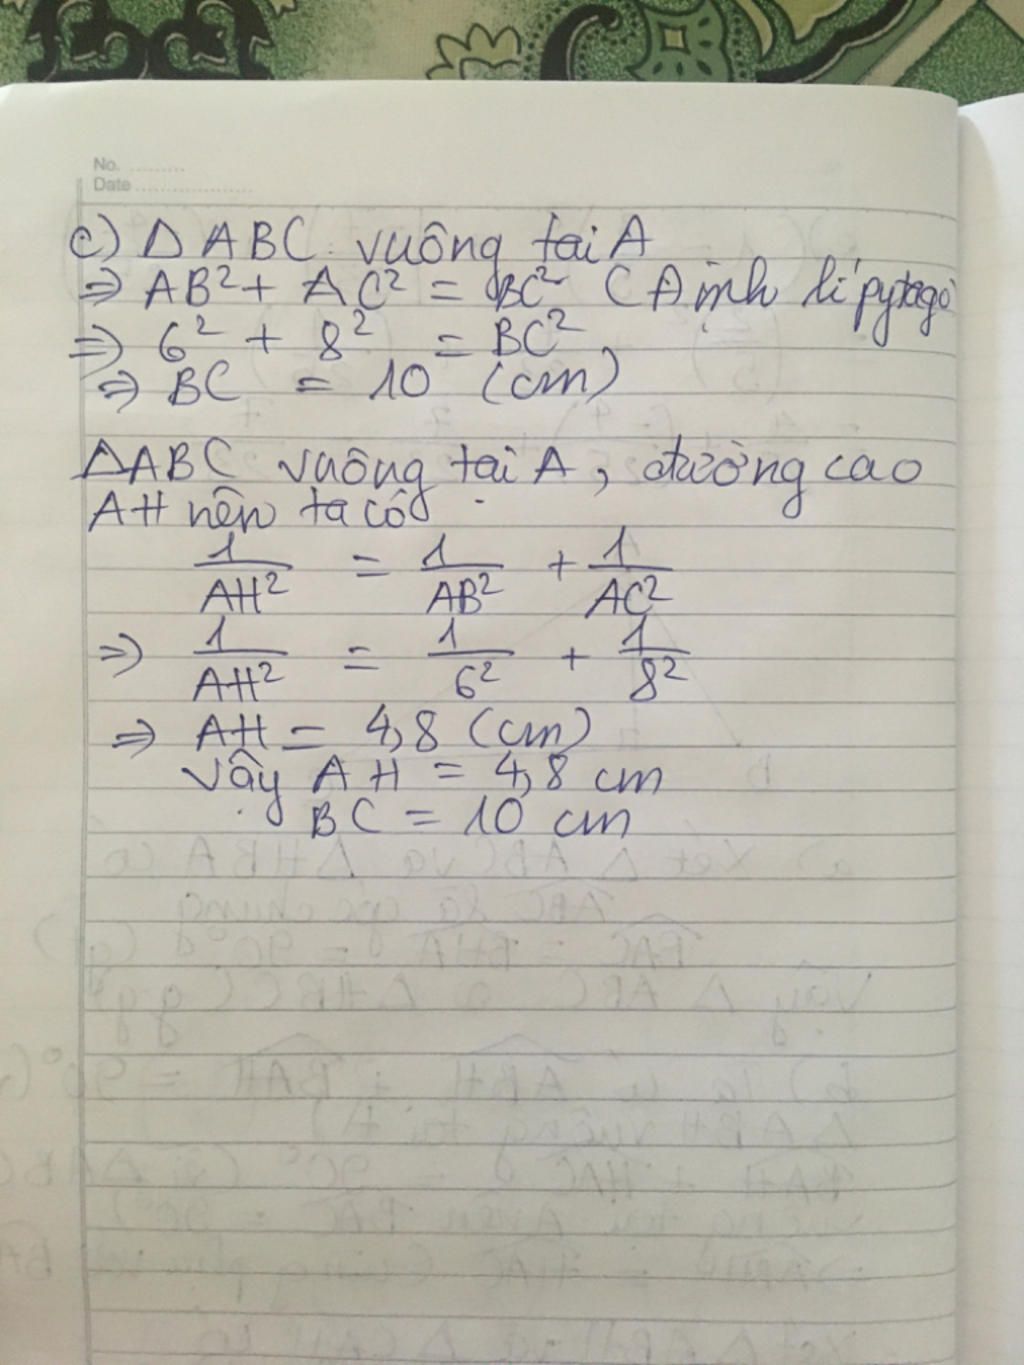 No. ..........
Date ......................
c) Δ ABC vuông tại A
⇒ AB² + AC² = BC² (Định lí pytago
⇒ 6² + 8² = BC²
⇒ BC = 10 (cm)
ΔABC vuông tại A, đường cao
AH nên ta có
1/AH² = 1/AB² + 1/AC²
⇒ 1/AH² = 1/6² + 1/8²
⇒ AH = 4,8 (cm)
Vậy AH = 4,8 cm
BC = 10 cm